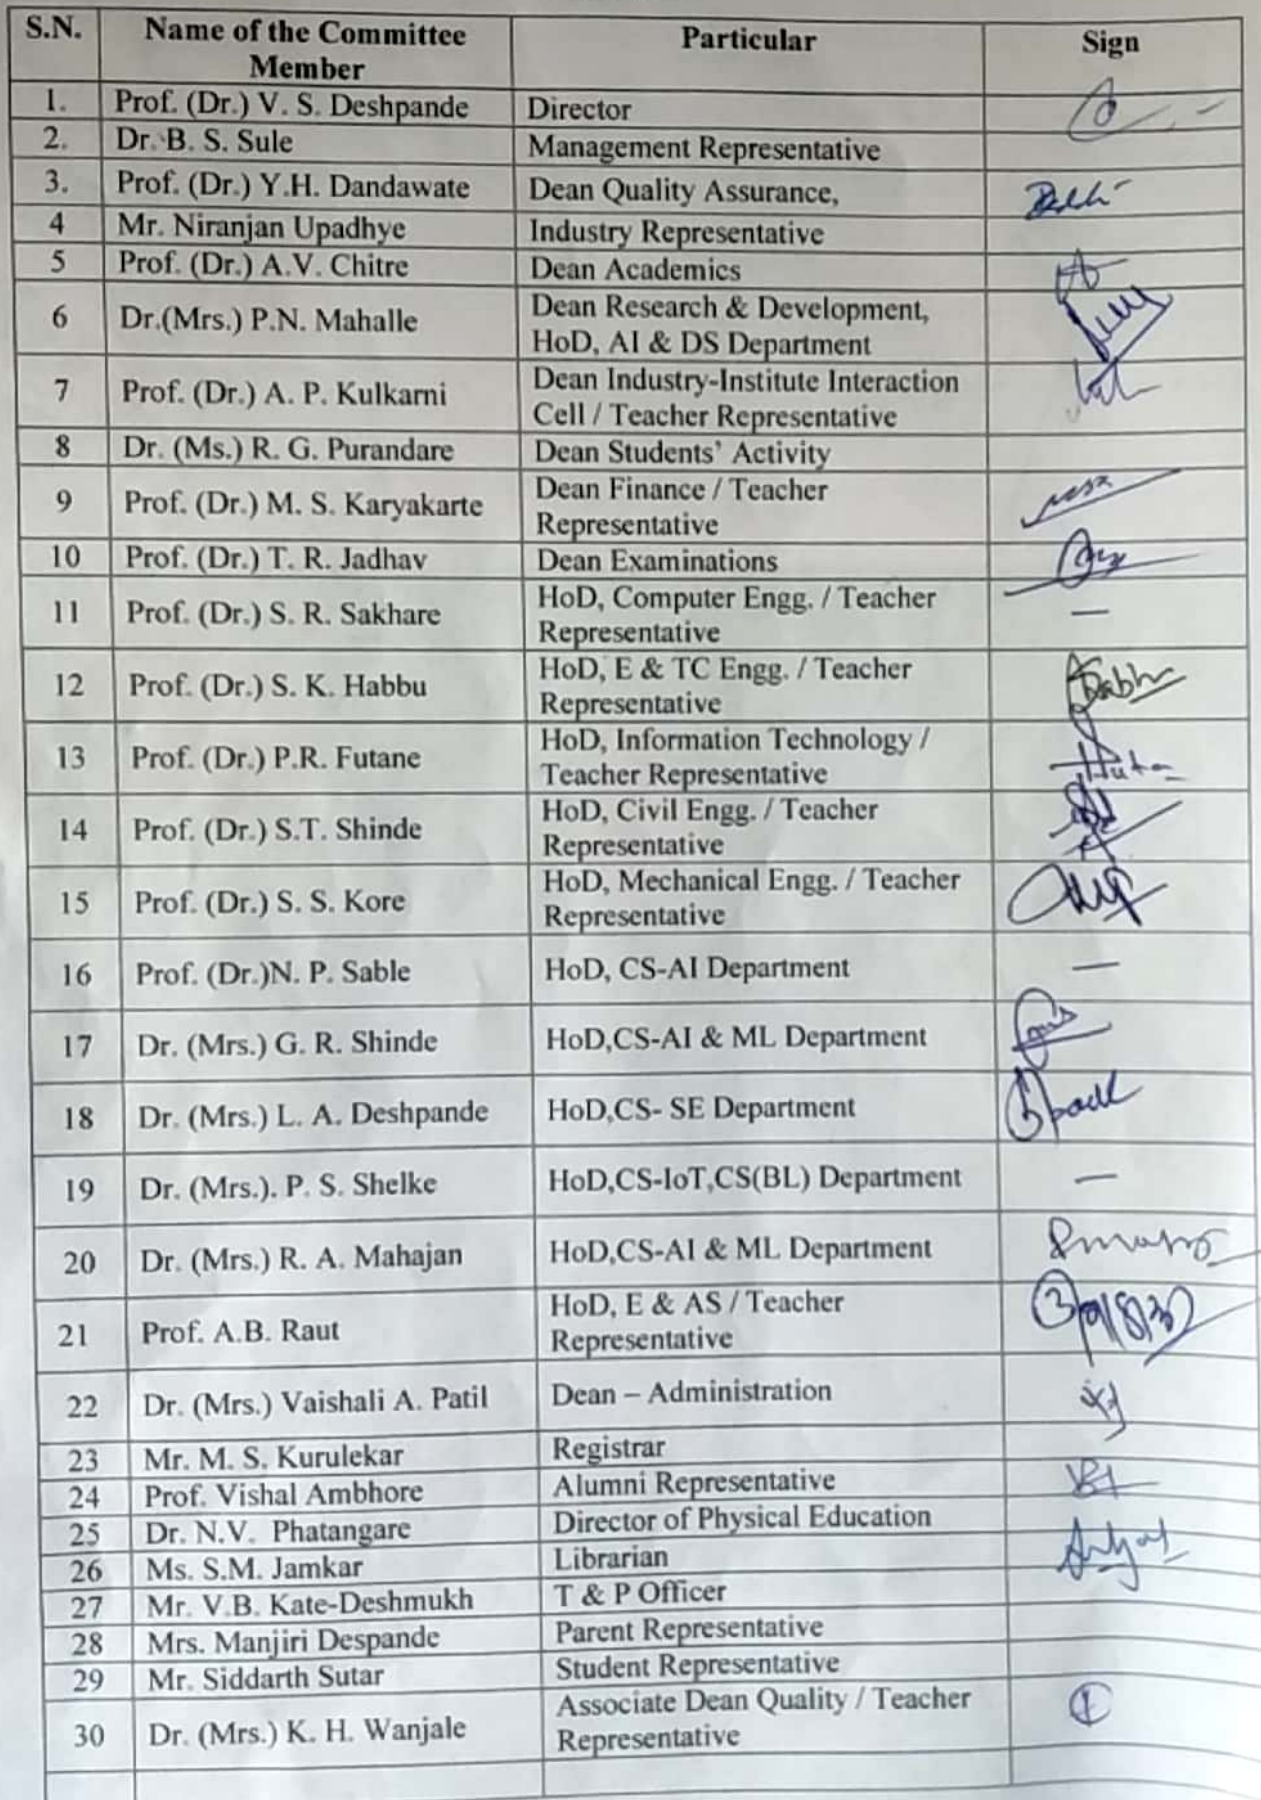 S.N. Name of the Committee Member Particular Sign
1. Prof. (Dr.) V. S. Deshpande Director
2. Dr. B. S. Sule Management Representative
3. Prof. (Dr.) Y.H. Dandawate Dean Quality Assurance,
4 Mr. Niranjan Upadhye Industry Representative
5 Prof. (Dr.) A.V. Chitre Dean Academics
6 Dr.(Mrs.) P.N. Mahalle Dean Research & Development,
HoD, AI & DS Department
7 Prof. (Dr.) A. P. Kulkarni Dean Industry-Institute Interaction
Cell / Teacher Representative
8 Dr. (Ms.) R. G. Purandare Dean Students' Activity
9 Prof. (Dr.) M. S. Karyakarte Dean Finance / Teacher
Representative
10 Prof. (Dr.) T. R. Jadhav Dean Examinations
11 Prof. (Dr.) S. R. Sakhare HoD, Computer Engg. / Teacher
Representative —
12 Prof. (Dr.) S. K. Habbu HoD, E & TC Engg. / Teacher
Representative
13 Prof. (Dr.) P.R. Futane HoD, Information Technology /
Teacher Representative
14 Prof. (Dr.) S.T. Shinde HoD, Civil Engg. / Teacher
Representative
15 Prof. (Dr.) S. S. Kore HoD, Mechanical Engg. / Teacher
Representative
16 Prof. (Dr.)N. P. Sable HoD, CS-AI Department —
17 Dr. (Mrs.) G. R. Shinde HoD,CS-AI & ML Department
18 Dr. (Mrs.) L. A. Deshpande HoD,CS- SE Department
19 Dr. (Mrs.). P. S. Shelke HoD,CS-IoT,CS(BL) Department —
20 Dr. (Mrs.) R. A. Mahajan HoD,CS-AI & ML Department
21 Prof. A.B. Raut HoD, E & AS / Teacher
Representative
22 Dr. (Mrs.) Vaishali A. Patil Dean – Administration
23 Mr. M. S. Kurulekar Registrar
24 Prof. Vishal Ambhore Alumni Representative
25 Dr. N.V. Phatangare Director of Physical Education
26 Ms. S.M. Jamkar Librarian
27 Mr. V.B. Kate-Deshmukh T & P Officer
28 Mrs. Manjiri Despande Parent Representative
29 Mr. Siddarth Sutar Student Representative
30 Dr. (Mrs.) K. H. Wanjale Associate Dean Quality / Teacher
Representative